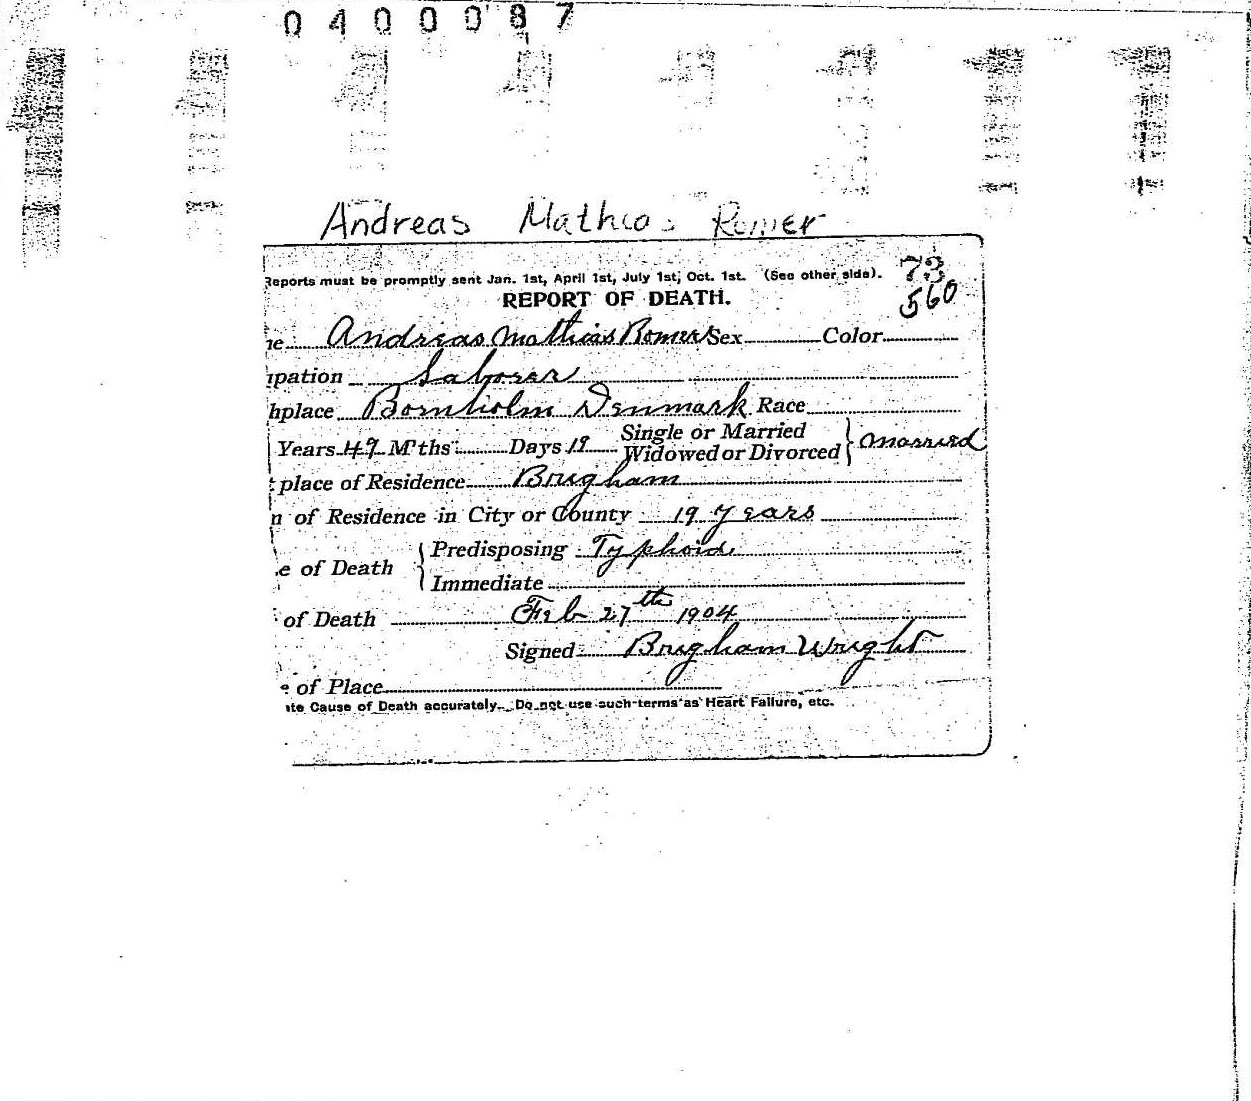 0400087
Andreas Mathias Romer
Reports must be promptly sent Jan. 1st, April 1st, July 1st, Oct. 1st. (See other side).
73
560
REPORT OF DEATH.
ne Andreas Mathias Romer Sex Color
upation Laborer
hplace Bornholm Denmark Race
Years 49 M'ths Days 19 Single or Married Widowed or Divorced } married
t place of Residence Brigham
n of Residence in City or County 19 years
e of Death { Predisposing Typhoid
Immediate
of Death Feb 27th 1904
Signed Brigham Wright
e of Place
ate Cause of Death accurately. Do not use such terms as Heart Failure, etc.